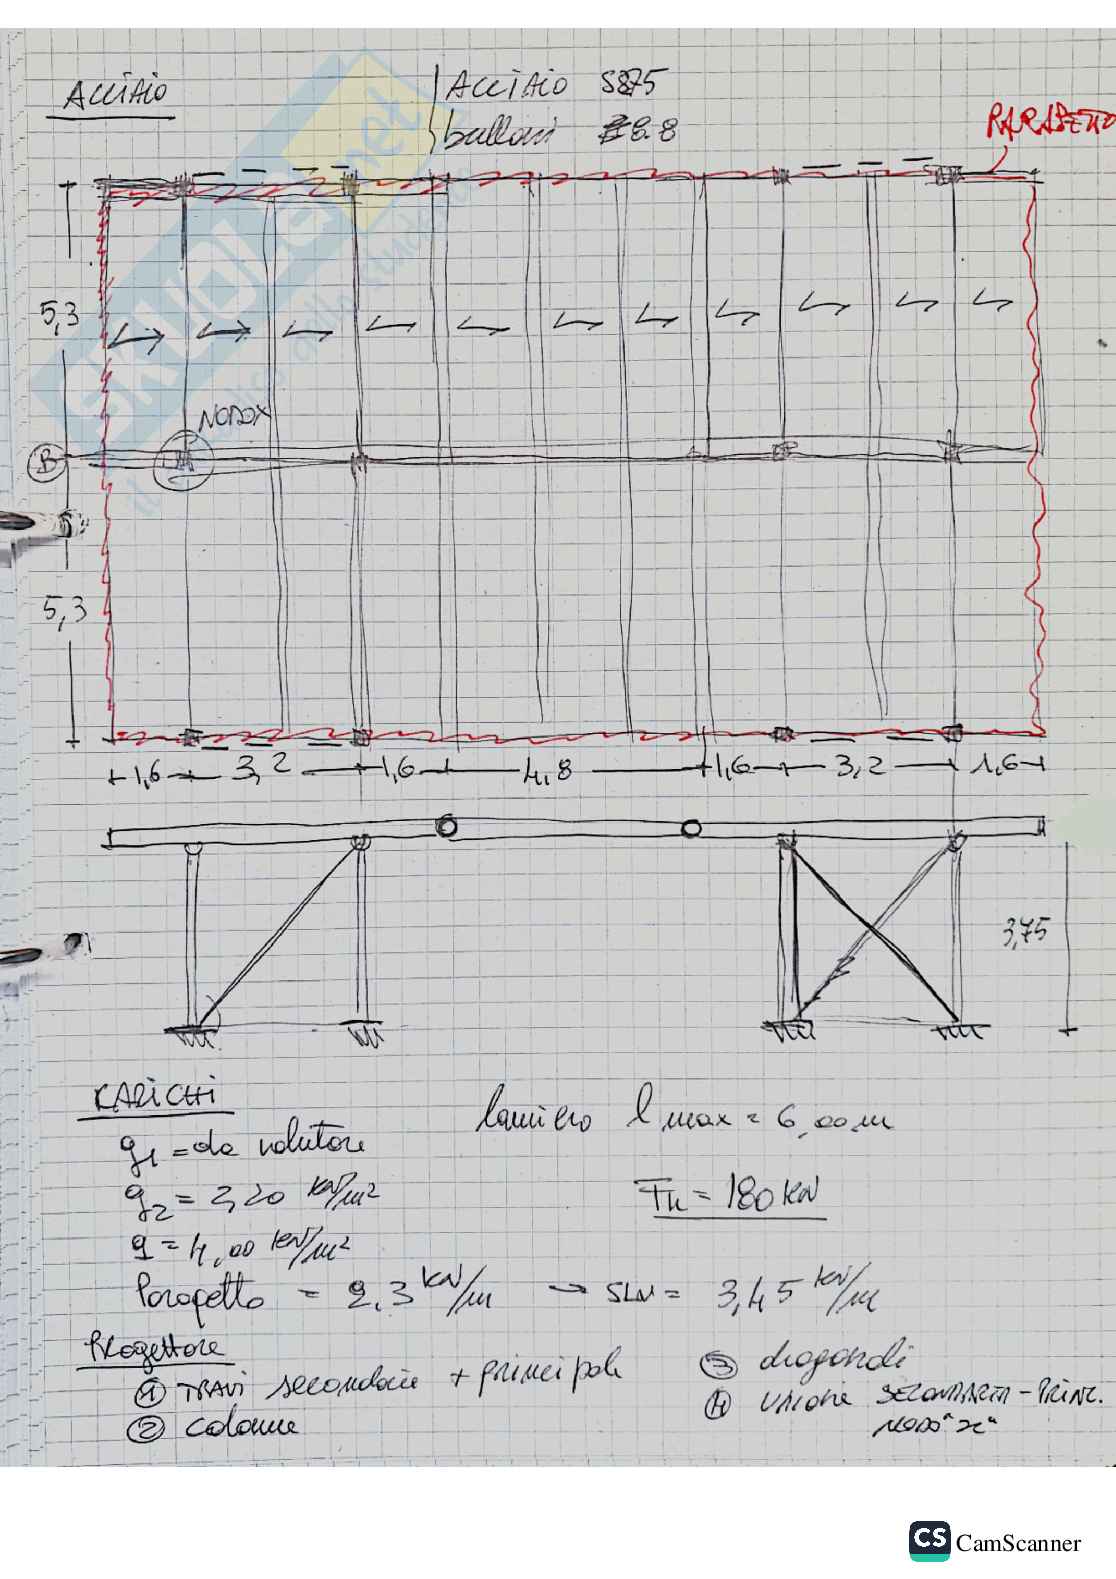 ACCIAIO
ACCIAIO S275
bulloni 8.8
PARAPETTO
5,3
NODO X
B
5,3
1,6 3,2 1,6 4,8 1,6 3,2 1,6
3,75
CARICHI
g1 = da valutare
lamiera l max = 6,00 m
g2 = 2,20 kN/m²
Fk = 180 kN
q = 4,00 kN/m²
Parapetto = 2,3 kN/m → SLU = 3,45 kN/m
Progettare
① TRAVI secondarie + principale
③ diagonali
② colonne
④ unione SECONDARIA - PRINC.
nodo "x"
SKUOLA.net
CS CamScanner